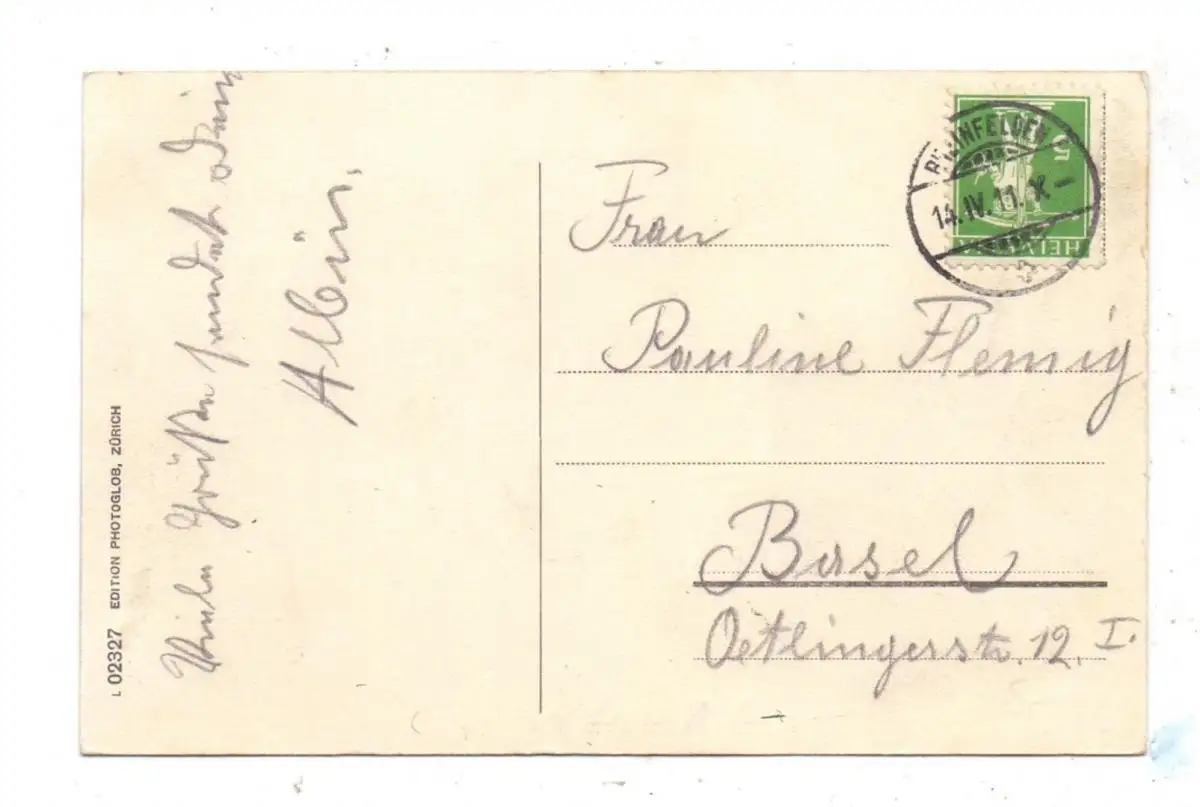 Viele Grüßen sendet Dein
Albin.
L 02327 EDITION PHOTOGLOB, ZÜRICH
5
HELVETIA
RHEINFELDEN
14.IV.11.
Frau
Pauline Flemig
Basel
Oetlingerstr. 12. I.